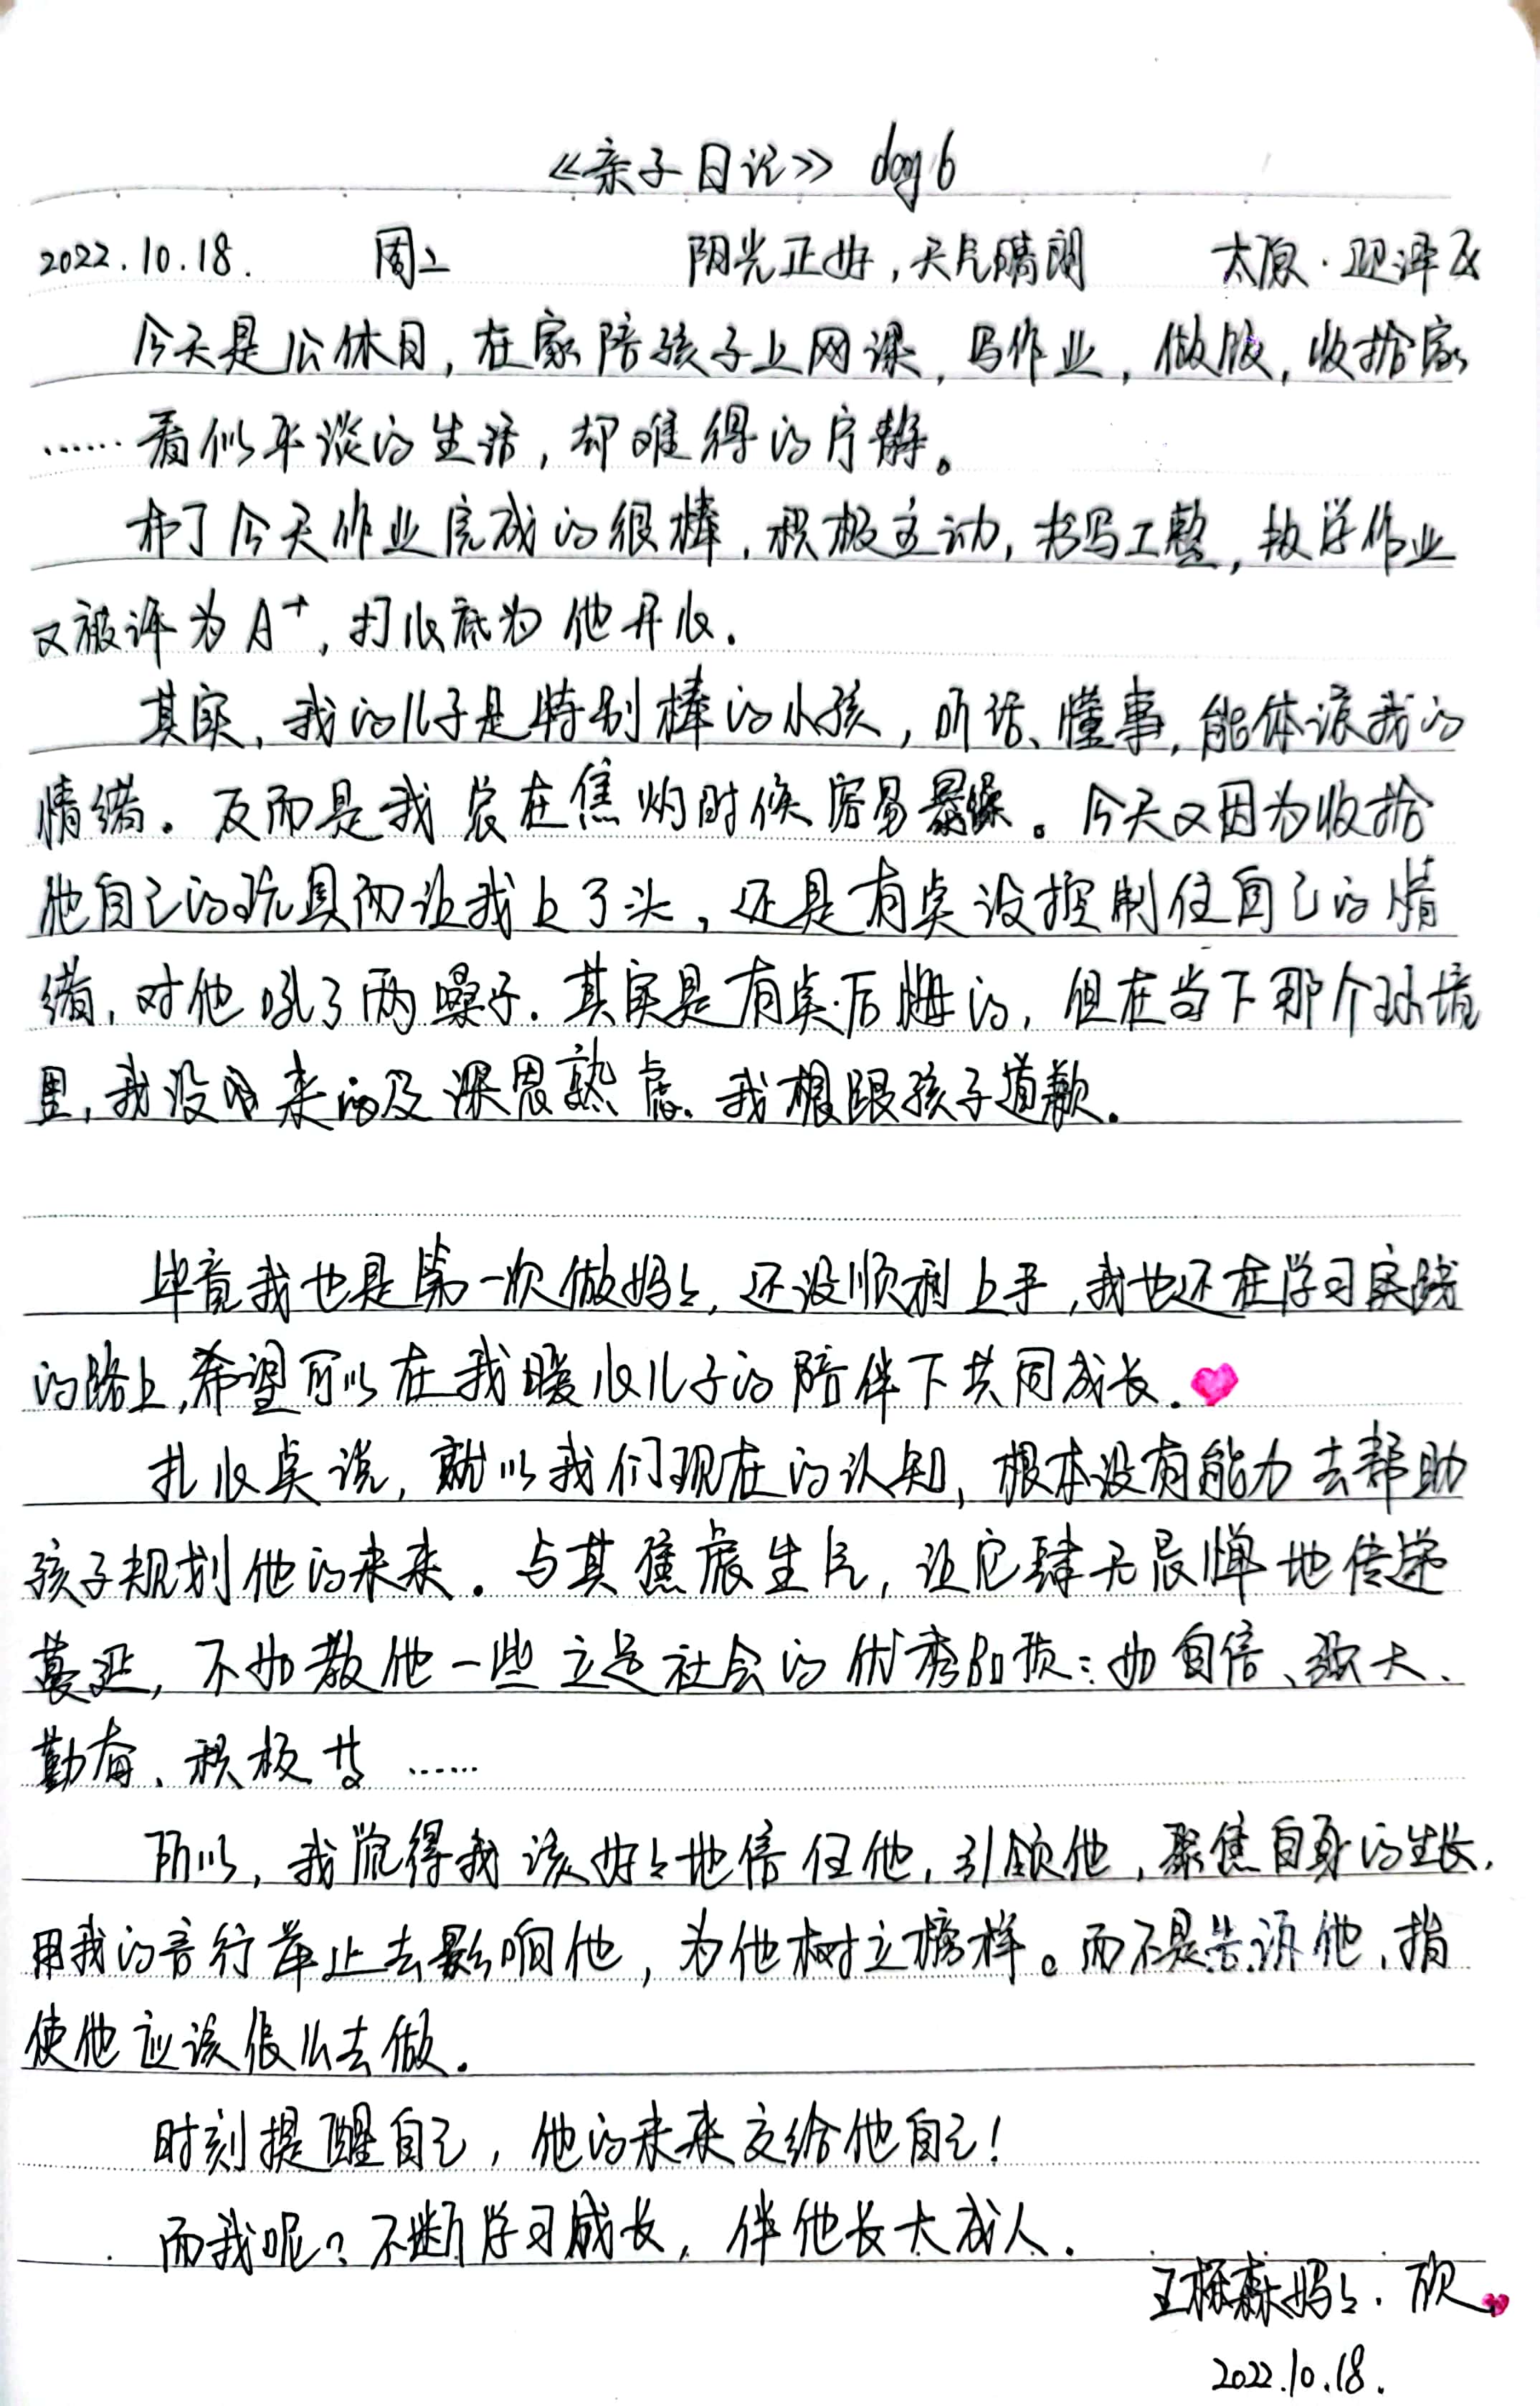 《亲子日记》 day 6
2022.10.18. 周二 阳光正好,天气晴朗 太原·迎泽区
今天是公休日,在家陪孩子上网课,写作业,做饭,收拾家
……看似平淡的生活,却难得的宁静。
木子今天作业完成的很棒,积极主动,书写工整,数学作业
又被评为A⁺,打心底为他开心.
其实,我的儿子是特别棒的小孩,听话、懂事,能体谅我的
情绪。反而是我总在焦灼时候容易暴躁。今天又因为收拾
他自己的玩具而让我上了头,还是有点没控制住自己的情
绪,对他吼了两嗓子.其实是有点后悔的,但在当下那个环境
里,我没有来的及深思熟虑.我想跟孩子道歉.
毕竟我也是第一次做妈妈,还没顺利上手,我也还在学习实践
的路上,希望可以在我暖心儿子的陪伴下共同成长.
扎心点说,就以我们现在的认知,根本没有能力去帮助
孩子规划他的未来.与其焦虑生气,让它肆无忌惮地传递
蔓延,不如教他一些立足社会的优秀品质:如自信、强大、
勤奋、积极 ……
所以,我觉得我该好好地信任他,引领他,聚焦自身的生长,
用我的言行举止去影响他,为他树立榜样。而不是告诉他,指
使他应该怎么去做.
时刻提醒自己,他的未来交给他自己!
而我呢?不断学习成长,伴他长大成人.
王 森妈妈.欣.
2022.10.18.